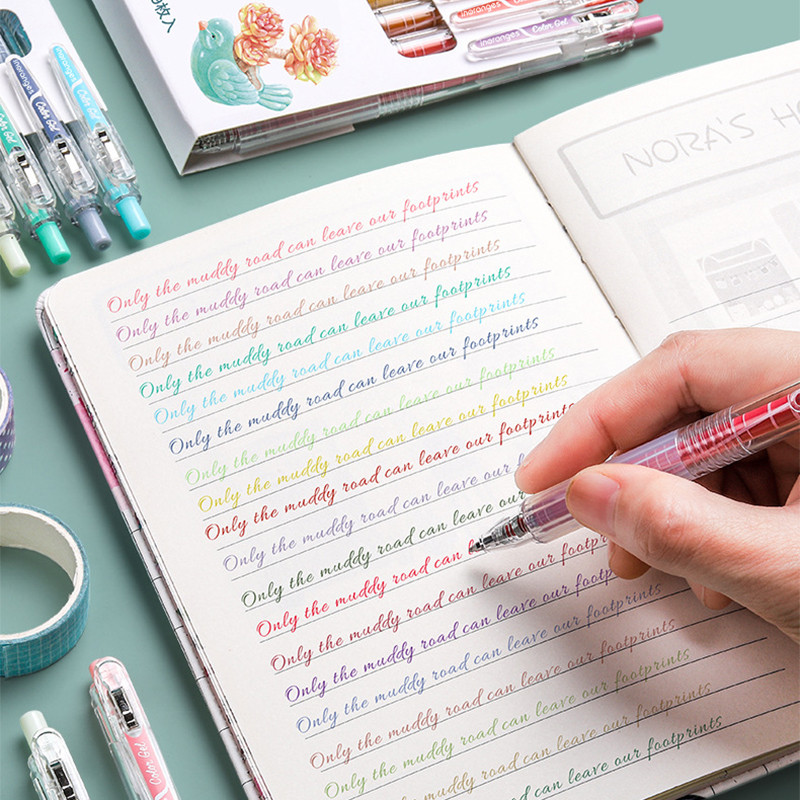 枚入
ineranges Color Gel
ineranges Color Gel
NORA'S
ineranges Color Gel
Color Gel
Color Gel
Only the muddy road can leave our footprints
Only the muddy road can leave our footprints
Only the muddy road can leave our footprints
Only the muddy road can leave our footprints
Only the muddy road can leave our footprints
Only the muddy road can leave our footprints
Only the muddy road can leave our footprints
Only the muddy road can leave our footprints
Only the muddy road can leave our footprints
Only the muddy road can leave our
Only the muddy road can leave our
Only the muddy road can
Only the muddy road can leave our
Only the muddy road can leave our footprints
Only the muddy road can leave our footprints
Only the muddy road can leave our footprints
Only the muddy road can leave our footprints
muddy road can leave our footprints
can leave our footprints
Color Gel